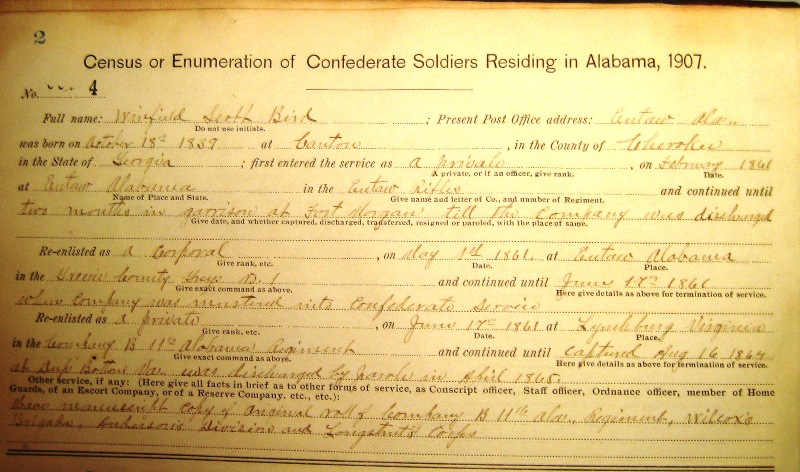 2
Census or Enumeration of Confederate Soldiers Residing in Alabama, 1907.
No. 4
Full name: Winfield Scott Bird ; Present Post Office address: Eutaw Ala.
Do not use initials.
was born on October 18th 1839 at Canton , in the County of Cherokee
in the State of Georgia ; first entered the service as a private , on February 1861
A private, or if an officer, give rank. Date.
at Eutaw Alabama in the Eutaw Rifles and continued until
Name of Place and State. Give name and letter of Co., and number of Regiment.
two months in garrison at Fort Morgan till the Company was discharged
Give date, and whether captured, discharged, transferred, resigned or paroled, with the place of same.
Re-enlisted as a Corporal , on May 1st 1861 at Eutaw Alabama
Give rank, etc. Date. Place.
in the Greene County No. 1 and continued until June 17th 1861
Give exact command as above. Here give details as above for termination of service.
when Company was mustered into Confederate Service
Re-enlisted as a private , on June 17th 1861 at Lynchburg Virginia
Give rank, etc. Date. Place.
in the Company B 11th Alabama Regiment and continued until captured Aug 16 1864
Give exact command as above. Here give details as above for termination of service.
at Deep Bottom Va. was discharged by parole in April 1865.
Other service, if any: (Here give all facts in brief as to other forms of service, as Conscript officer, Staff officer, Ordnance officer, member of Home
Guards, of an Escort Company, or of a Reserve Company, etc., etc.):
Have manuscript copy of original roll of Company B 11th Ala. Regiment, Wilcox's
Brigade, Anderson's Division and Longstreet's Corps